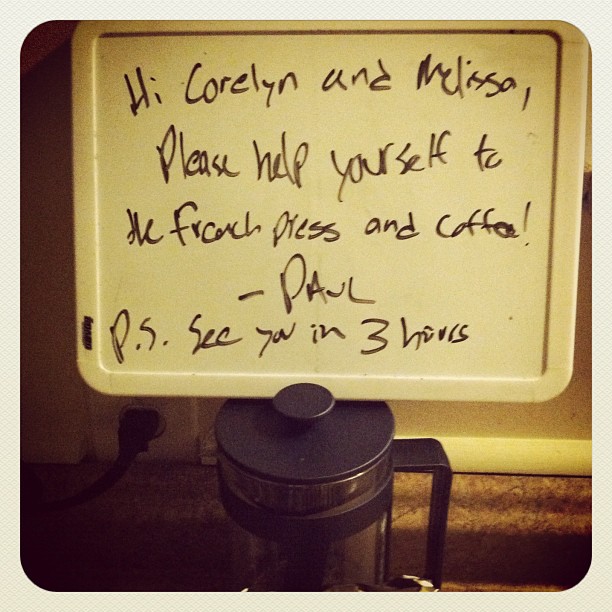 Hi Corelyn and Melissa,
Please help yourself to
the french press and coffee!
- PAUL
P.S. See you in 3 hours